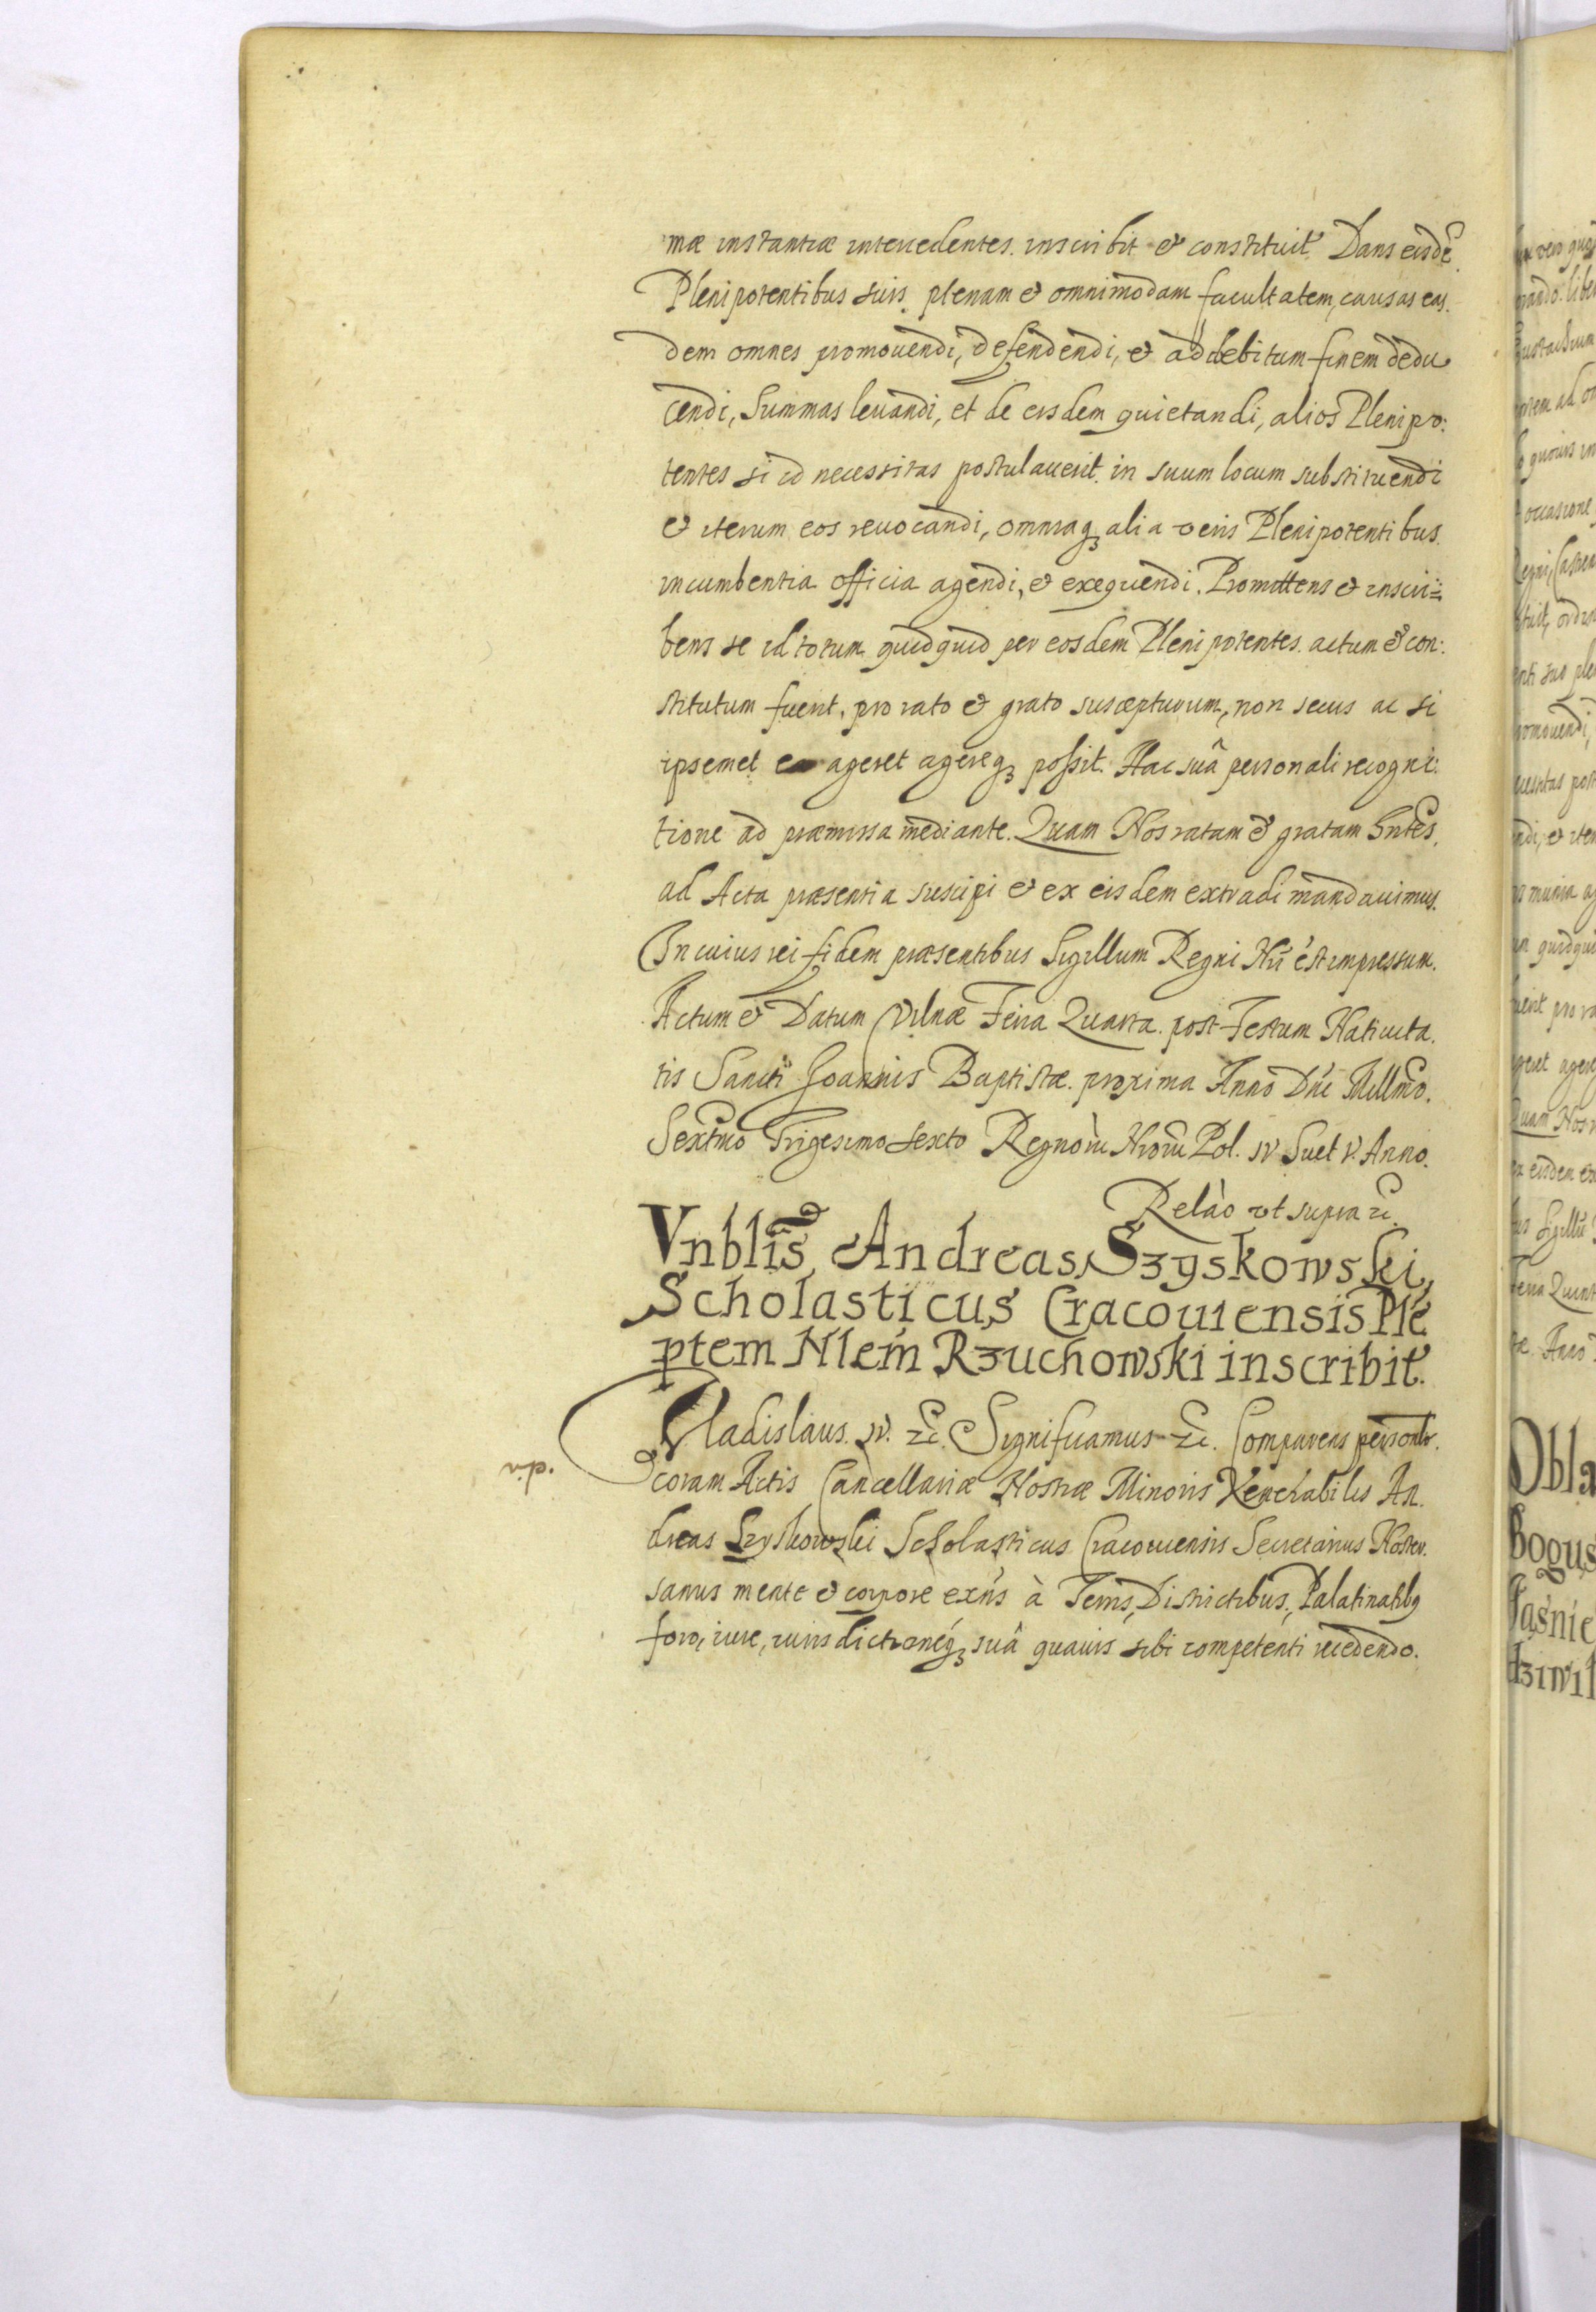 mæ instantiæ intercedentes. inscribit et constituit. Dans eisdē
Plenipotentibus suis plenam et omnimodam facultatem, causas eas.
dem omnes promouendi, defendendi, et ad debitum finem dedu
cendi, Summas leuandi, et de eisdem quietandi, alios Plenipo:
tentes si id necessitas postulauerit. in suum locum substituendi
et iterum eos reuocandi, omniaqꝫ alia veris Plenipotentibus
incumbentia officia agendi, et exequendi. Promittens et inscri=
bens se id totum quidquid per eosdem Plenipotentes. actum et con:
stitutum fuerit, pro rato et grato suscepturum, non secus ac si
ipsemet ea ageret agereqꝫ possit. Hac suâ personali recogni:
tione ad præmissa mediante. Quam Nos ratam et gratam hntes,
ad Acta præsentia suscipi et ex eisdem extradi mandauimus.
In cuius rei fidem præsentibus Sigillum Regni Nrī est impressum.
Actum et Datum Vilnæ Feria Quarta. post Festum Natiuita.
tis Sancti Joannis Baptistæ. proxima Anno Dnī Millmo.
Sextmo Trigesimo sexto Regnorū Nrorū Pol. IV Suet V. Anno.
Relào vt supra ꝛc.
Vnblis Andreas Szyskowski,
Scholasticus Cracouiensis Ple
ptem Nlem Rzuchowski inscribit.
Vladislaus. IV. ꝛc. Significamus ꝛc. Comparens personlr.
coram Actis Cancellariæ Nostræ Minoris Venerabilis An.
dreas Szyskowski Scholasticus Cracouiensis Secretarius Noster.
sanus mente et corpore exñs à Terris, Districtibus, Palatinatibꝫ
foro, iure, iurisdictioneqꝫ suâ quauis sibi competenti recedendo.